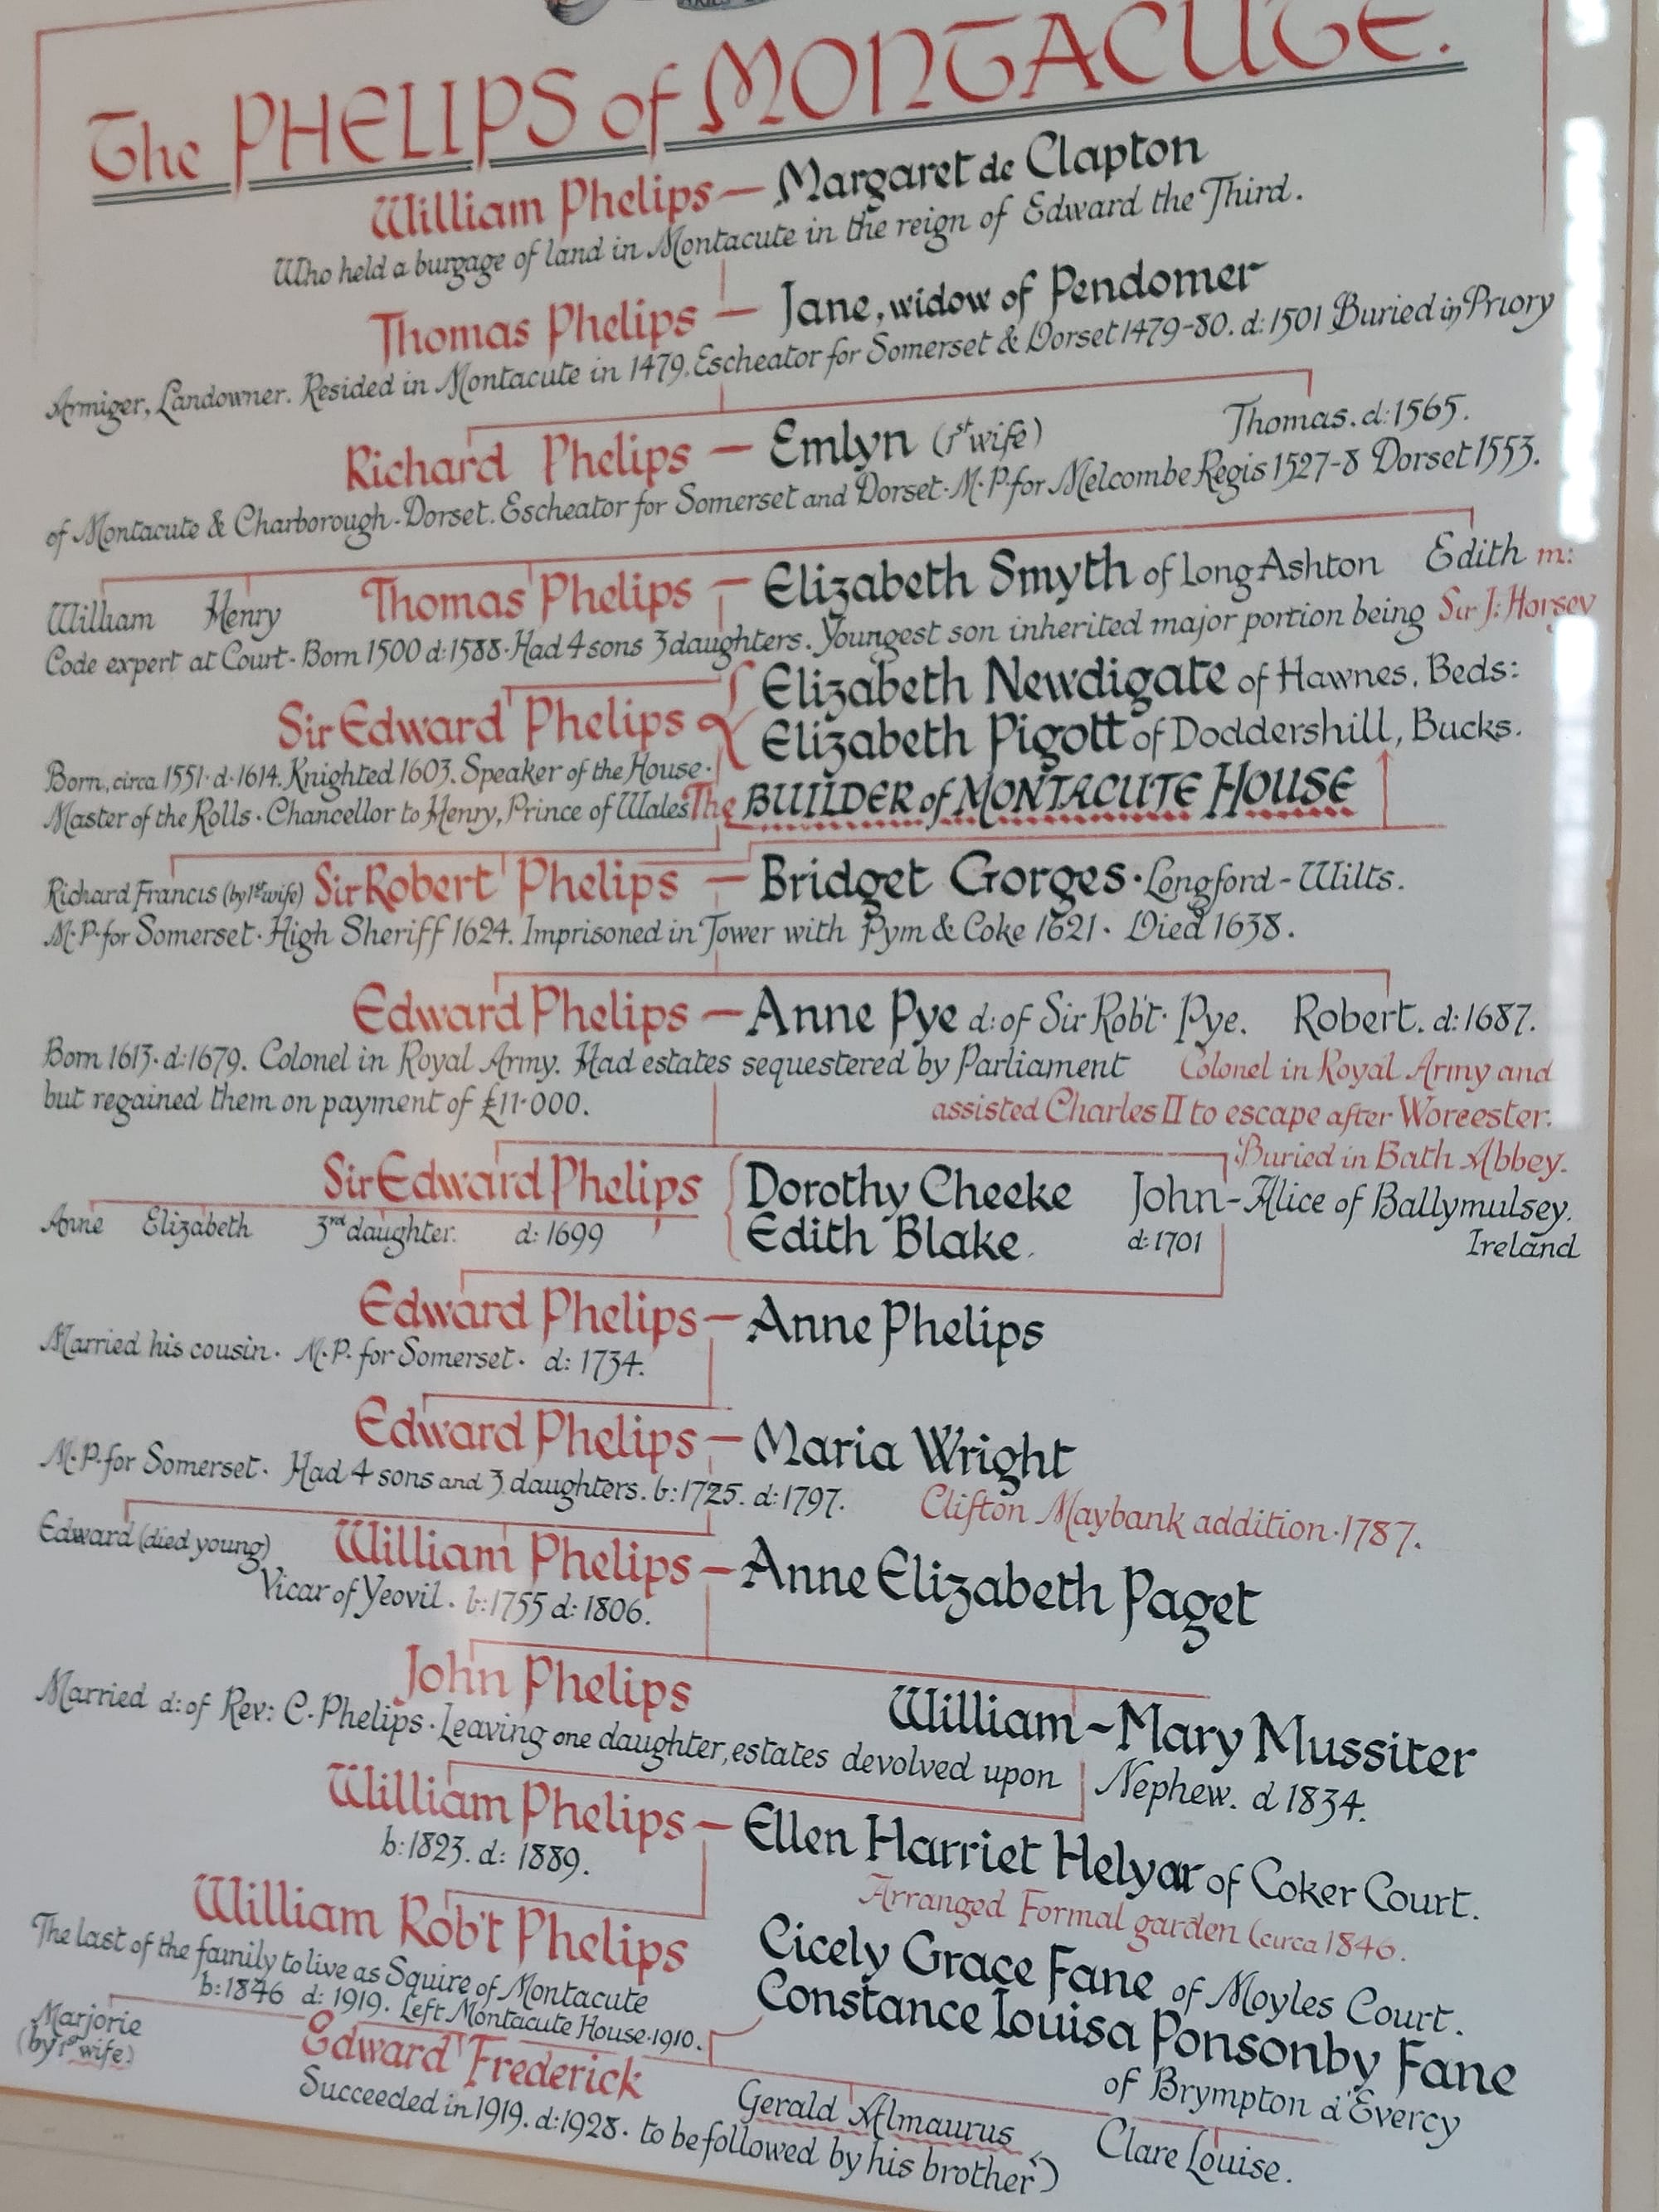 The PHELIPS of MONTACUTE.
William Phelips — Margaret de Clapton
Who held a burgage of land in Montacute in the reign of Edward the Third.
Thomas Phelips — Jane, widow of Pendomer
Armiger, Landowner. Resided in Montacute in 1479. Escheator for Somerset & Dorset 1479-80. d: 1501 Buried in Priory
Richard Phelips — Emlyn (1st wife) Thomas. d: 1565.
of Montacute & Charborough - Dorset. Escheator for Somerset and Dorset · M·P· for Melcombe Regis 1527-8 Dorset 1553.
William Henry Thomas Phelips — Elizabeth Smyth of Long Ashton Edith m:
Code expert at Court - Born 1500 d: 1588 · Had 4 sons 3 daughters. Youngest son inherited major portion being Sir J: Horsey
Sir Edward Phelips Elizabeth Newdigate of Hawnes, Beds:
Elizabeth Pigott of Doddershill, Bucks.
Born, circa 1551 · d · 1614. Knighted 1603. Speaker of the House ·
Master of the Rolls · Chancellor to Henry, Prince of Wales The BUILDER of MONTACUTE HOUSE
Richard Francis (by 1st wife) Sir Robert Phelips — Bridget Gorges · Longford - Wilts.
M·P· for Somerset · High Sheriff 1624. Imprisoned in Tower with Pym & Coke 1621 · Died 1638.
Edward Phelips — Anne Pye d: of Sir Rob't · Pye. Robert. d: 1687.
Born 1613 · d: 1679. Colonel in Royal Army. Had estates sequestered by Parliament Colonel in Royal Army and
but regained them on payment of £11·000. assisted Charles II to escape after Worcester.
Buried in Bath Abbey.
Sir Edward Phelips Dorothy Cheeke John - Alice of Ballymulsey.
Anne Elizabeth 3rd daughter. d: 1699 Edith Blake. d: 1701 Ireland
Edward Phelips — Anne Phelips
Married his cousin · M·P· for Somerset · d: 1734.
Edward Phelips — Maria Wright
M·P· for Somerset · Had 4 sons and 3 daughters. b: 1725. d: 1797. Clifton Maybank addition · 1787.
Edward (died young) William Phelips — Anne Elizabeth Paget
Vicar of Yeovil. b: 1755 d: 1806.
John Phelips William - Mary Mussiter
Married d: of Rev: C. Phelips · Leaving one daughter, estates devolved upon Nephew. d 1834.
William Phelips — Ellen Harriet Helyar of Coker Court.
b: 1823. d: 1889. Arranged Formal garden (circa 1846.
William Rob't Phelips Cicely Grace Fane of Moyles Court.
The last of the family to live as Squire of Montacute Constance Louisa Ponsonby Fane
b: 1846 d: 1919. Left Montacute House · 1910. of Brympton d'Evercy
Marjorie (by 1st wife) Edward Frederick Gerald Almaurus Clare Louise.
Succeeded in 1919. d: 1928 · to be followed by his brother)